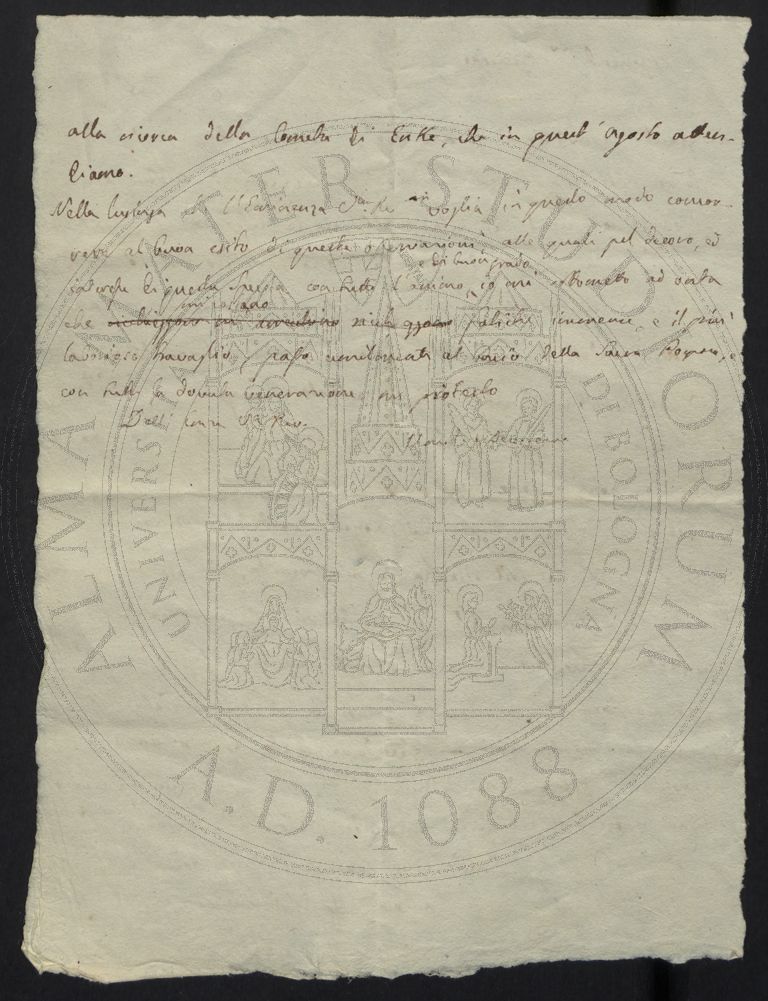 alla ricerca della Cometa di Enke, che in quest'Agosto atten-
diamo.
Nella lusinga che l'Eminenza Sua Rma voglia in questo modo coope-
rare al buon esito di queste osservazioni, alle quali pel decoro, ed
di questa con tutto l'animo, e di buon grado io mi sottometto ad onta
che mi costano fatiche immense, e il più
laborioso travaglio, passo umilmente al bacio della Sacra Porpora, e
con tutta la dovuta venerazione mi protesto
Dell'Emza Sa Rma
ALMA MATER STUDIORUM
UNIVERSITÀ DI BOLOGNA
A.D. 1088